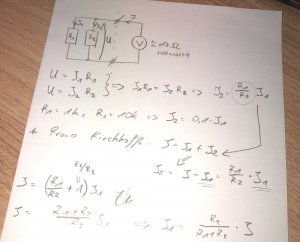 J
J₁ J₂
R₁ R₂ U V
U = J₁ R₁
U = J₂ R₂ } => J₁R₁ = J₂ R₂ => J₂ = R₁/R₂ J₁
R₁ = 1k, R₂ = 10k => J₂ = 0,1·J₁
* Prawo Kirchhoffa J = J₁ + J₂
R₂/R₂
J₂ = J - J₁ = R₁/R₂ · J₁
J = (R₁/R₂ + 1) J₁
J = R₁+R₂/R₂ J₁ => J₁ = R₂/R₁+R₂ · J